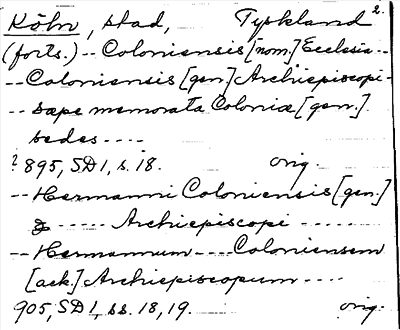 Köln, stad, Tyskland 2.
(forts.) -- Coloniensis [nom.] Ecclesia --
-- Coloniensis [gen] Archiepiscopi -
-- sæpe memorata Coloniæ [gen.]
sedes ----
? 895, SD 1, s. 18. orig.
-- Hermanni Coloniensis [gen.]
----- Archiepiscopi -----
-- Hermannum ---- Coloniensem
[ack.] Archiepiscopum ----
905, SD 1, ss. 18, 19. orig.